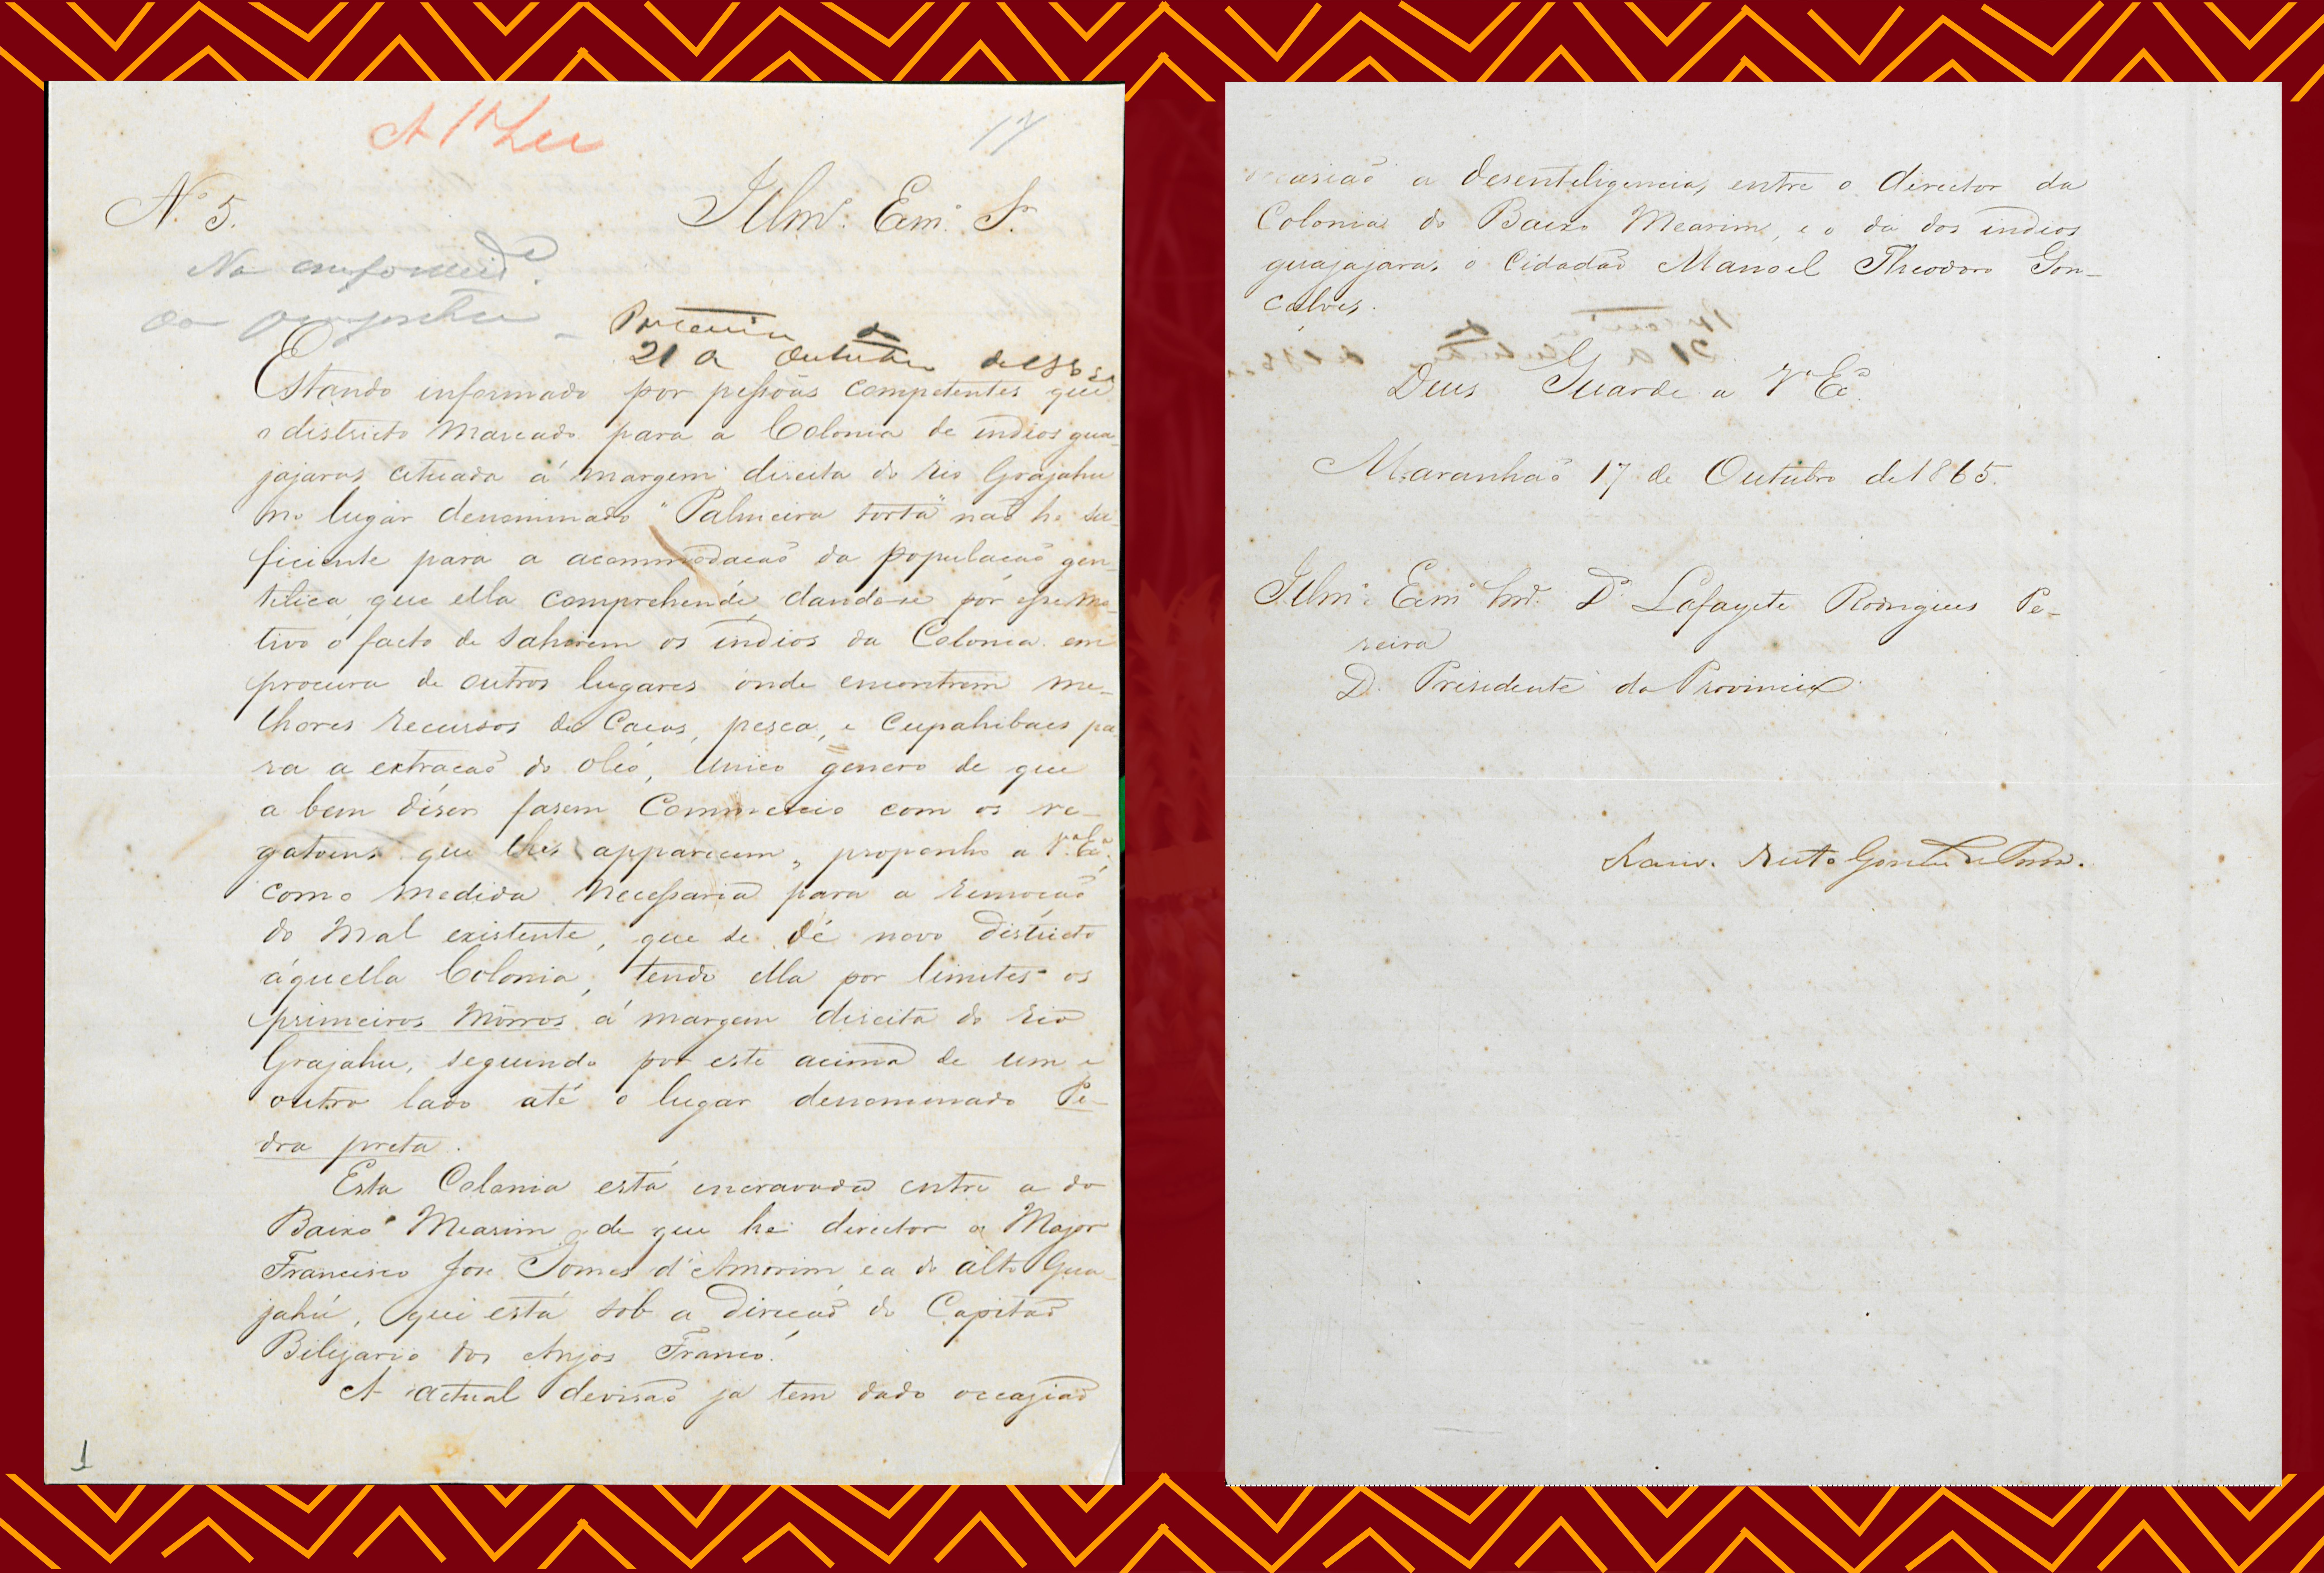 17
N.º 5.
Illmº. Exmº. Sr.
Na conformide.
da proposta
Portaria de
21 de Outubro de 1865
Estando informado por peſsôas competentes que
o districto marcado para a Colonia de indios gua-
jajaras cituada á margem direita do rio Grajahu
no lugar denominado "Palmeira torta" naõ he su-
ficiente para a acommodacaõ da populacaõ gen-
tilica que ella comprehende dando-se por eſse mo-
tivo o facto de sahirem os indios da Colonia em
procura de outros lugares onde encontrem me-
lhores recursos de Cacas, pesca, e Cupahibaes pa-
ra a extracaõ do oleo, unico genero de que
a bem diser fasem Commercio com os re-
gatoens que lhes apparecem, proponho a V.ª Ex.ª
como medida neceſsaria para a remocaõ
do mal existente, que se dê novo districto
áquella Colonia, tendo ella por limites os
primeiros Morros á margem direita do rio
Grajahu, seguindo por este acima de um e
outro lado até o lugar denominado Pe-
dra preta.
Esta Colonia está encravada entre a do
Baixo Mearim de que he director o Major
Francisco Jose Gomes d'Amorim, e a do alto Gua-
jahú, que está sob a direcaõ do Capitaõ
Biliзario dos Anjos Franco.
A actual devisaõ ja tem dado occaziaõ
1
casiaõ a desenteligencia, entre o director da
Colonia do Baixo Mearim, e o da dos indios
guajajaras o Cidadaõ Manoel Theodoro Gon-
calves.
Deus Guarde a V.ª Ex.ª
Maranhaõ 17 de Outubro de 1865.
Illmº. Exmº. Snr. Dr. Lafayete Rodrigues Pe-
reira
D. Presidente da Provincia